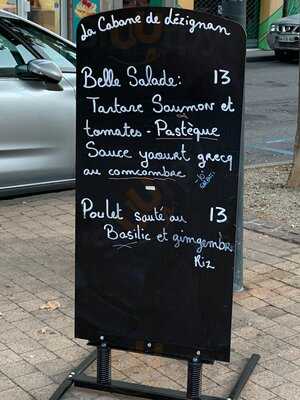 La Cabane de Lézignan
Belle Salade : 13
Tartare Saumon et
tomates - Pastèque
Sauce yaourt grecq
au comcombre
Poulet sauté au 13
Basilic et gimgembre
Riz